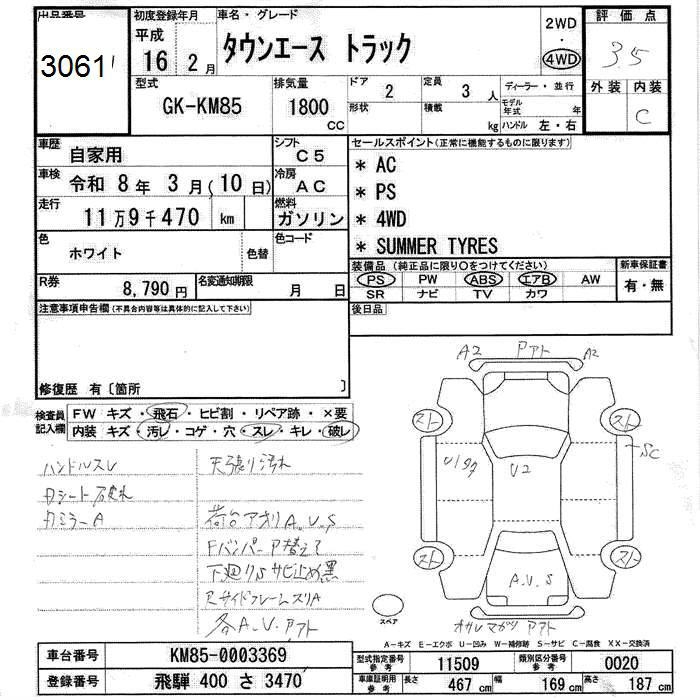 出品番号
3061
初度登録年月
平成
16 2 月
車名・グレード
タウンエース トラック
2WD
・
4WD
評価点
35
外装 内装
C
型式
GK-KM85
排気量
1800
CC
ドア
2
定員
3 人
形状
積載
kg
ディーラー・並行
モデル年式 年
ハンドル 左・右
車歴
自家用
シフト
C5
車検
令和 8 年 3 月(10 日)
冷房
AC
走行
11 万 9 千 470 km
燃料
ガソリン
色
ホワイト
色替
色コード
R券
8,790 円
名変通知期限
月 日
セールスポイント(正常に機能するものに限ります)
* AC
* PS
* 4WD
* SUMMER TYRES
装備品 (純正品に限り○をつけてください)
PS PW ABS エアB AW
SR ナビ TV カワ
新車保証書
有・無
注意事項申告欄(不具合内容等は具体的に記入して下さい)
後日品
修復歴 有〔箇所 〕
検査員記入欄
FW キズ・飛石・ヒビ割・リペア跡・×要
内装 キズ・汚レ・コゲ・穴・スレ・キレ・破レ
ハンドルスレ
天張り汚れ
シート破れ
ミラーA
荷台アオリA.V.S
Fバンパー
下廻りSサビ止め黒
サイドフレームスリA
各A.U.アト
A2 Pアト A2
スト スト
SC
U2
スト スト
A.U.S
スペア
A－キズ E－エクボ U－凹み W－補修跡 S－サビ C－腐食 XX－交換済
車台番号
KM85-0003369
登録番号
飛騨 400 さ 3470
型式指定番号
参考
11509
類別区分番号
参考
0020
車庫証明用
参考
長さ 467 cm 幅 169 cm 高さ 187 cm